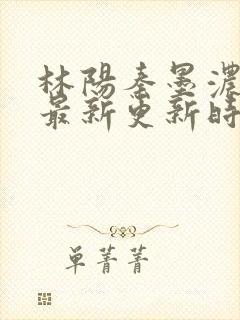 林陽秦墨濃
最新更新時
单菁菁